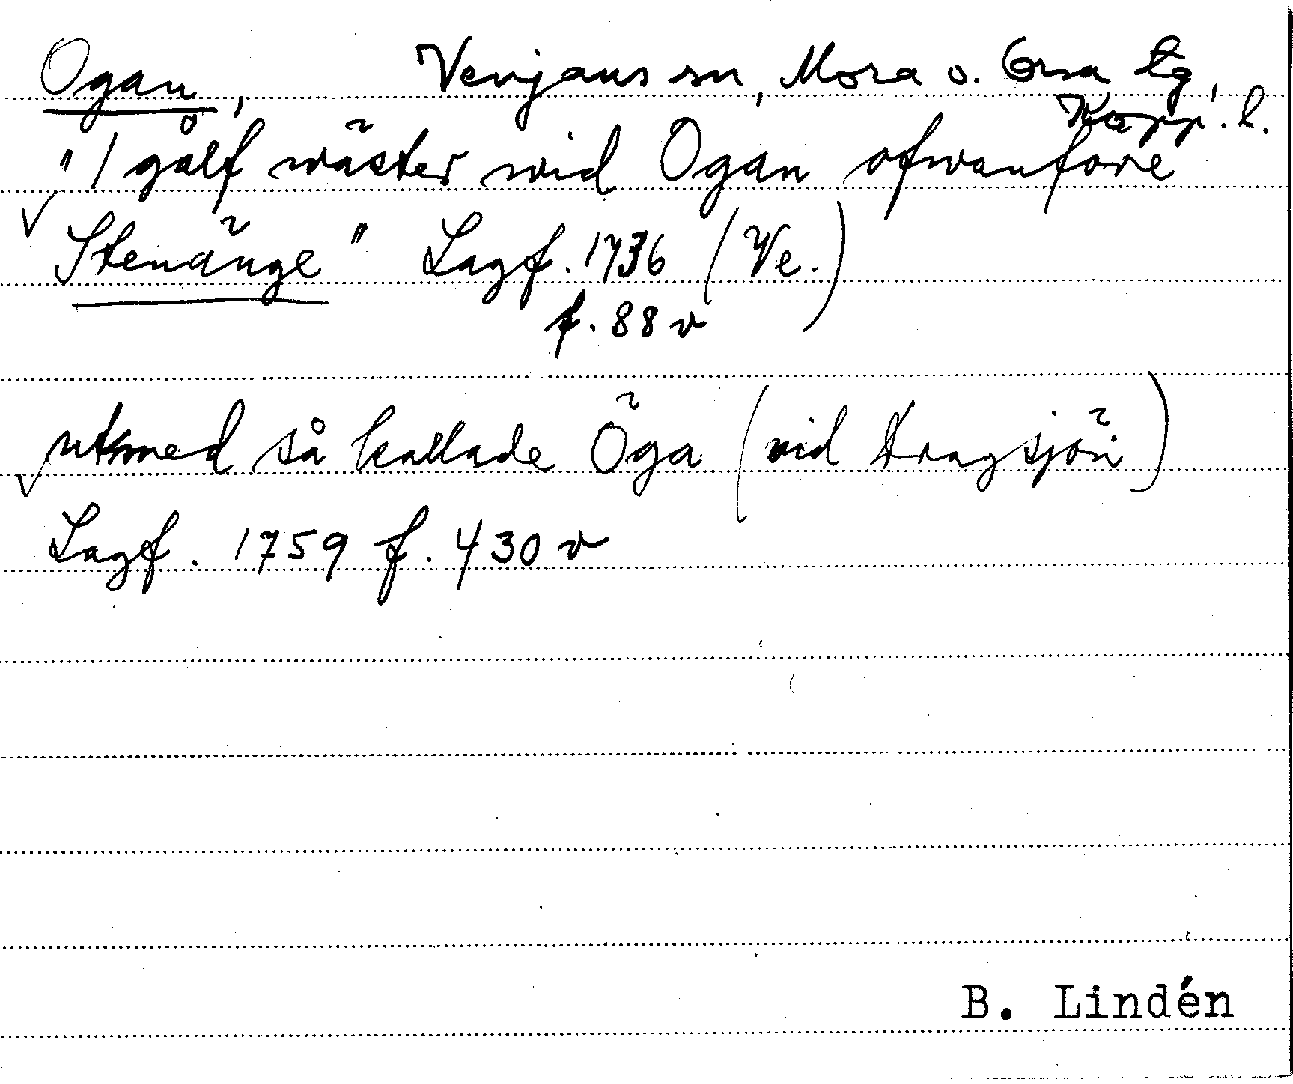 Ogan, Venjans sn, Mora o. Orsa tg,
Kopp. l.
"1 gålf wäster wid Ogan ofwanföre
Stenänge" Lagf. 1736 (Ve.)
f. 88 v
utmed så kallade Öga (vid Dragsjön)
Lagf. 1759 f. 430 v
B. Lindén